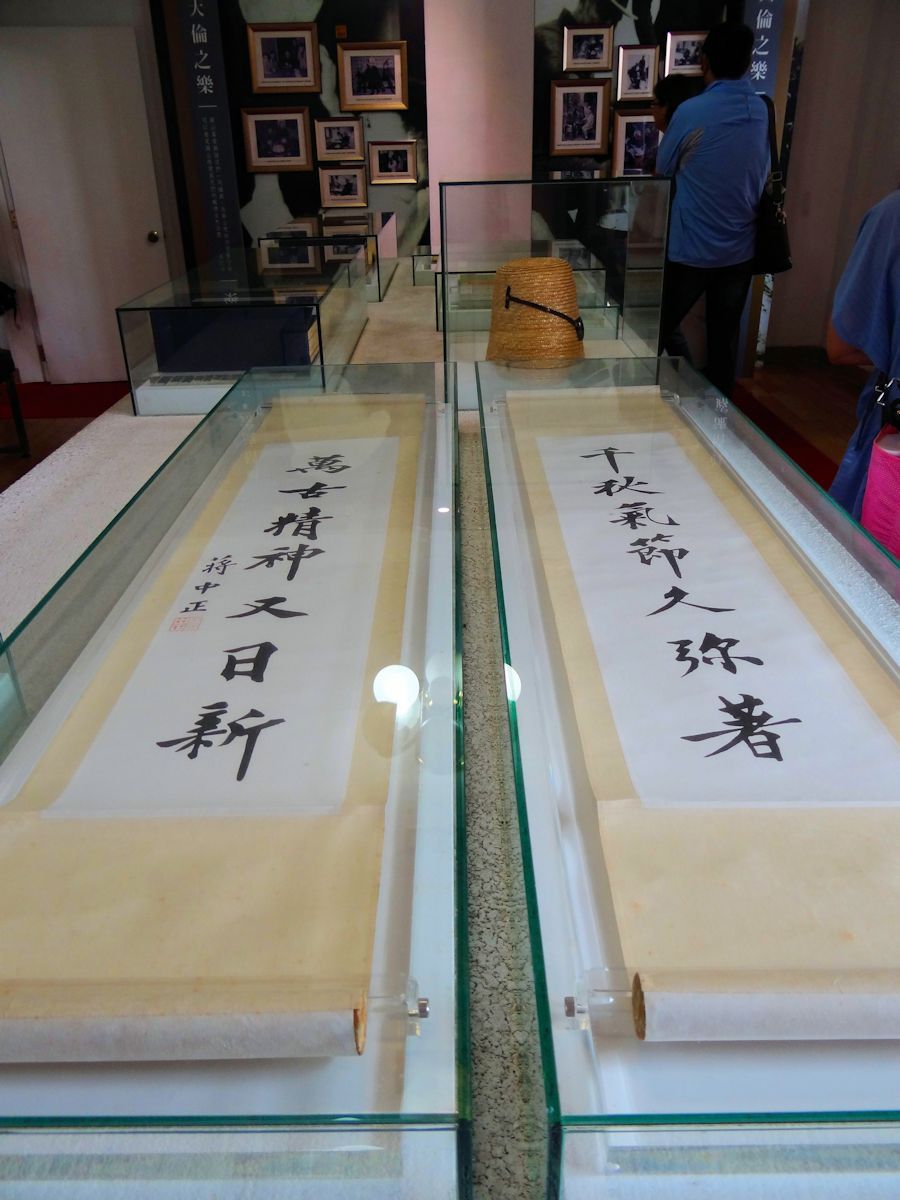 千秋氣節久弥著
萬古精神又日新
蔣中正
天倫之樂
倫之樂